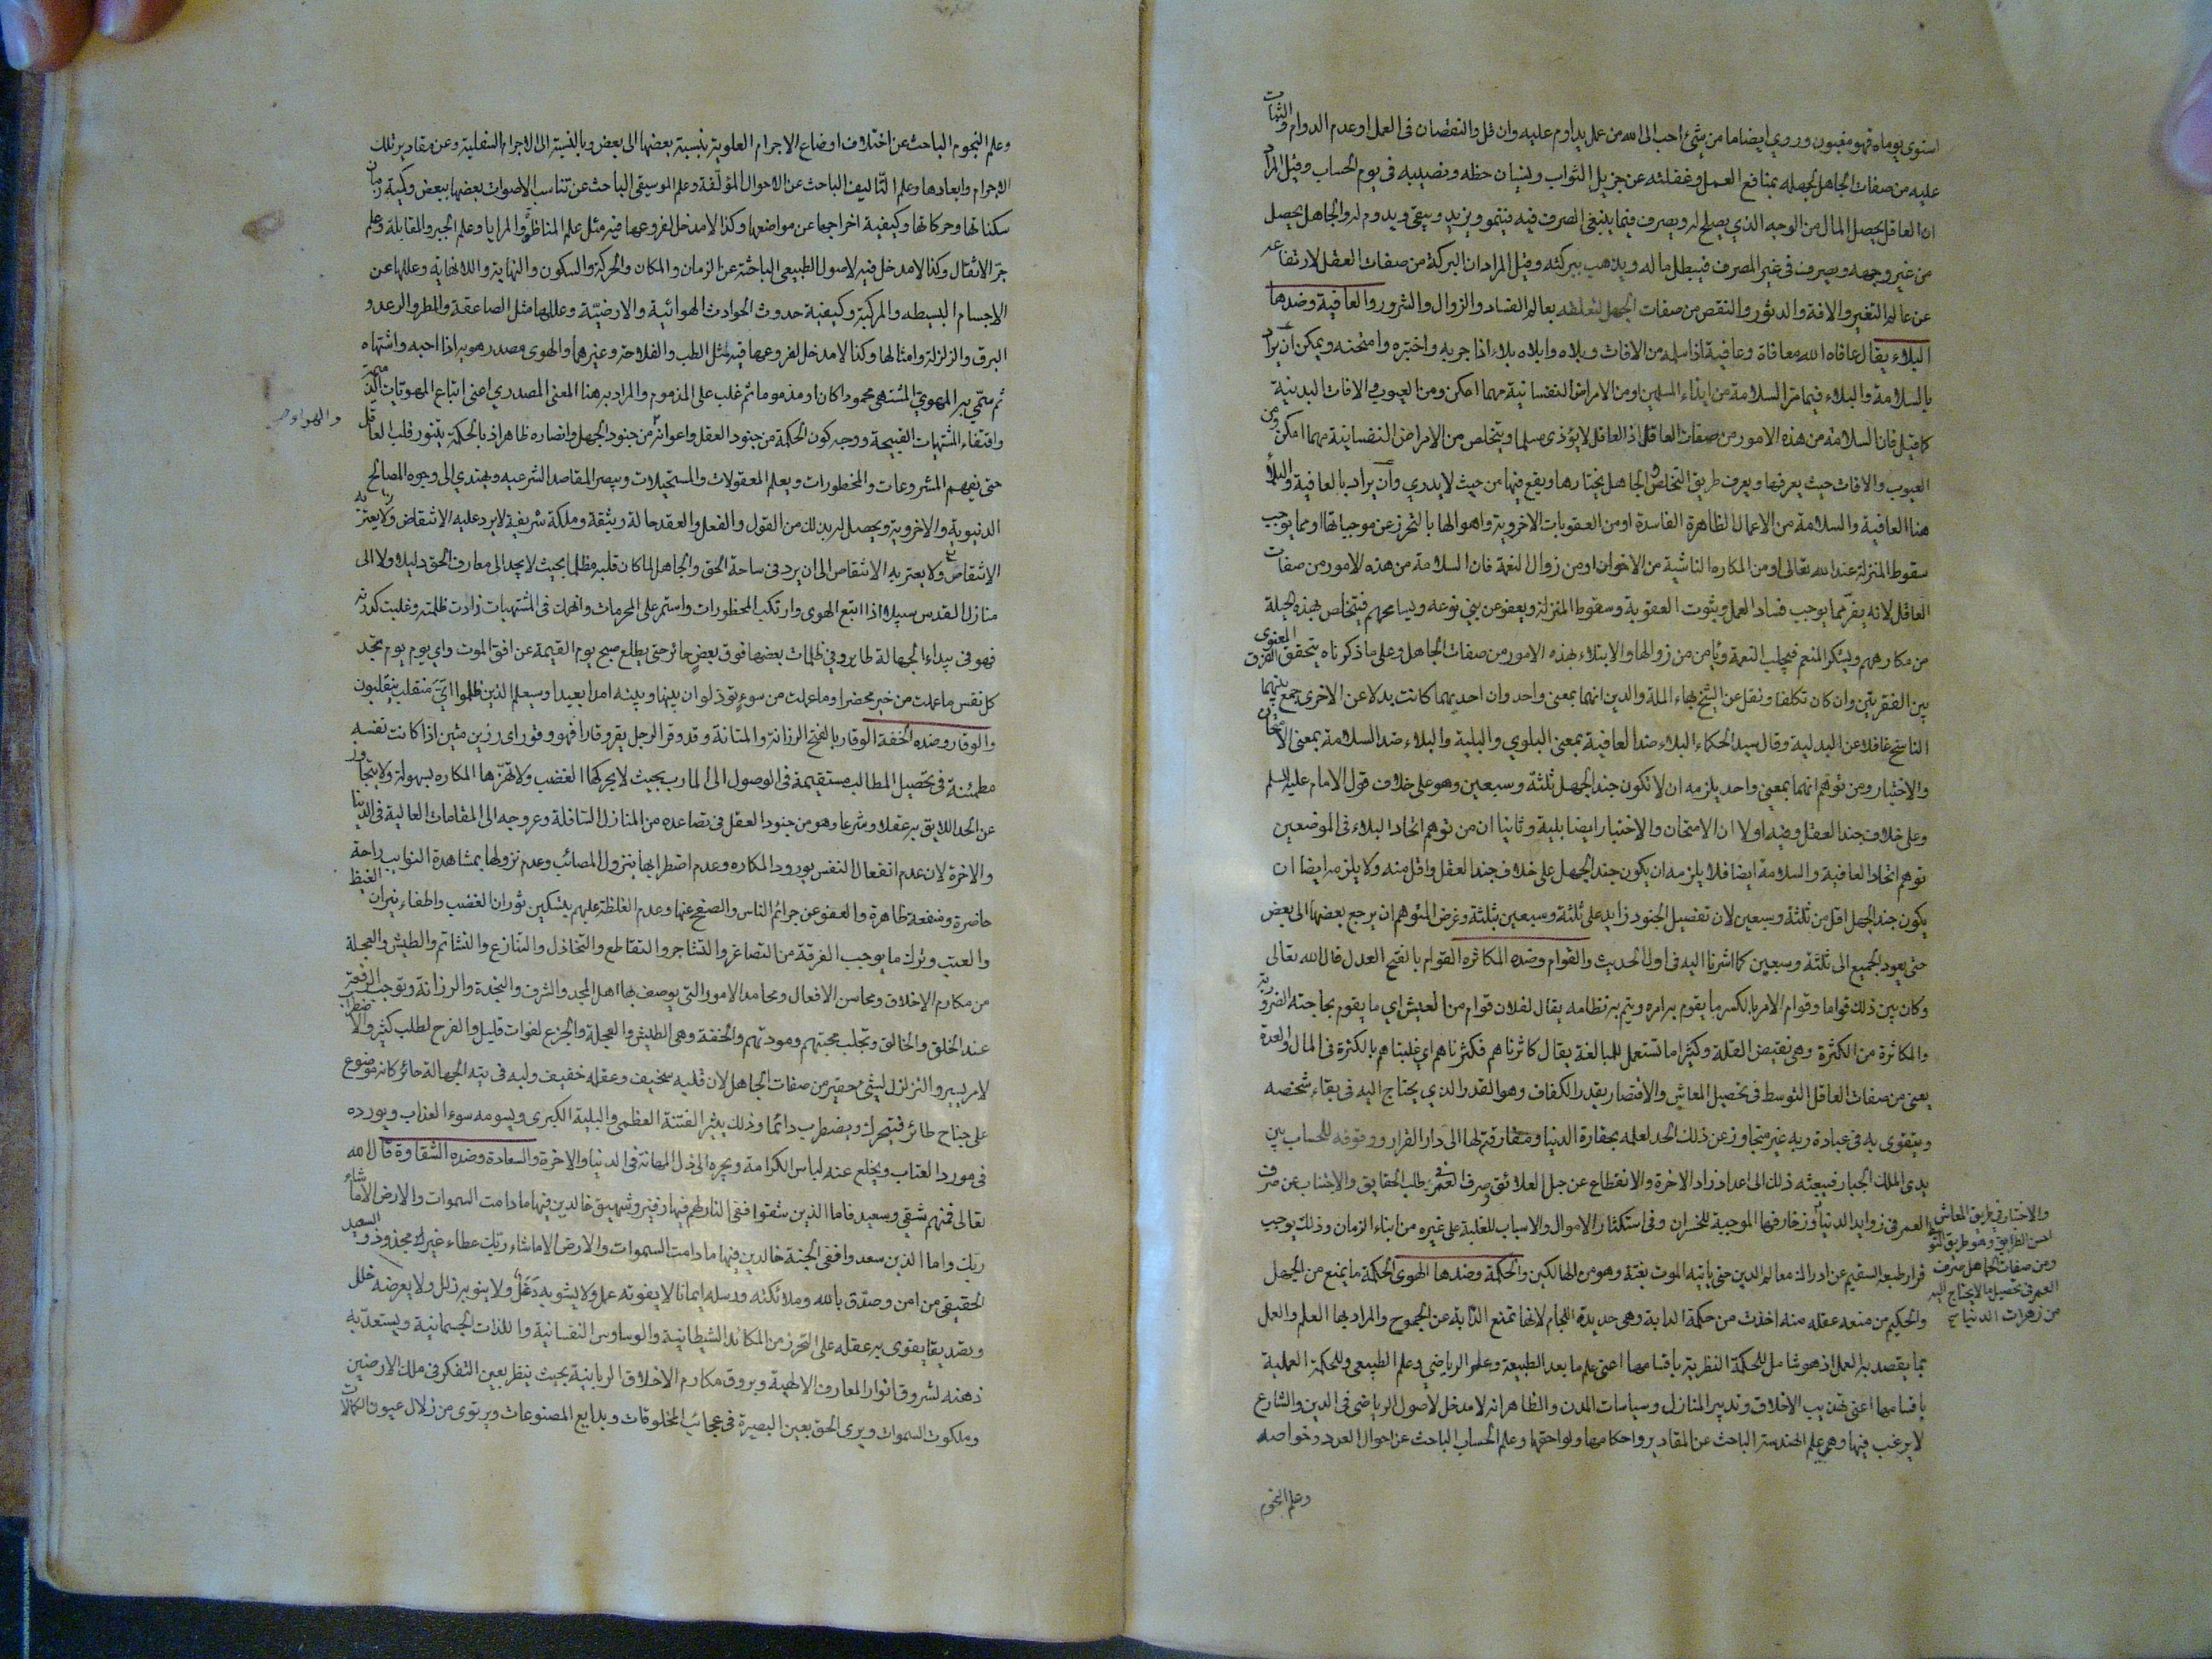 استوى يوماه فهو مغبون وروي ايضا ما من شئ احب الى الله من عمل يداوم عليه وان قل والنقصان في العمل او عدم الدوام والثبات
عليه من صفات الجاهل لجهله بمنافع العمل وغفلته عن جزيل الثواب ونسيان حظه ونصيبه في يوم الحساب وقيل المراد
ان العاقل يحصل المال من الوجه الذي يصلح له ويصرف فيما ينبغي الصرف فيه فينمو ويزيد ويبقى ويدوم له والجاهل يحصل
من غير وجهه ويصرف في غير المصرف فيبطل ماله ويذهب ببركته وقيل المراد ان البركة من صفات العقل لارتفاعه
عن عالم التغير والافة والدثور والنقص من صفات الجهل لتعلقه بعالم الفساد والزوال والشرور والعافية وضدها
البلاء يقال عافاه الله معافاة وعافية اذا سلمه من الافات وبلاه وابلاه بلاء اذا جربه واختبره وامتحنه ويمكن ان يراد
بالسلامة والبلاء فيما مر السلامة من ايذاء المسلمين او من الامراض النفسانية مهما امكن ومن العيوب والافات البدنية
كما قيل فان السلامة من هذه الامور من صفات العاقل اذ العاقل لا يؤذي مسلما ويتخلص من الامراض النفسانية مهما امكن ومن
العيوب والافات حيث يعرفها ويعرف طريق التخلص والجاهل يختارها ويقع فيها من حيث لا يدري وان يراد بالعافية والبلاء
هنا العافية والسلامة من الاعمال الظاهرة الفاسدة او من العقوبات الاخروية واهوالها بالتحرز عن موجباتها او مما يوجب
سقوط المنزلة عند الله تعالى او من المكاره الناشية من الاخوان او من زوال النعمة فان السلامة من هذه الامور من صفات
العاقل لانه يفر مما يوجب فساد العمل وثبوت العقوبة وسقوط المنزلة ويعفو عن بني نوعه ويسامحهم فيتخلص بهذه الحيلة
من مكارههم ويشكر المنعم فيجلب النعمة ويأمن من زوالها والابتلاء بهذه الامور من صفات الجاهل وعلى ما ذكرناه يتحقق الفرق المعنوي
بين الفقرتين وان كان تكلفا ونقل عن الشيخ بهاء الملة والدين انهما بمعنى واحد وان احديهما كانت بدلا عن الاخرى جمع بينهما
الناسخ غافلا عن البدلية وقال سيد الحكماء البلاء ضد العافية بمعنى البلوي والبلية والبلاء ضد السلامة بمعنى الامتحان
والاختبار ومن توهم انهما بمعنى واحد يلزمه ان لا تكون جند الجهل ثلثة وسبعين وهو على خلاف قول الامام عليه السلم
وعلى خلاف جند العقل وفيه اولا ان الامتحان والاختبار ايضا بلية وثانيا ان من توهم اتحاد البلاء في الموضعين
توهم اتحاد العافية والسلامة ايضا فلا يلزمه ان يكون جند الجهل على خلاف جند العقل واقل منه ولا يلزمه ايضا ان
يكون جند الجهل اقل من ثلثة وسبعين لان تفصيل الجنود زايد على ثلثة وسبعين بثلثة وغرض المتوهم ان يرجع بعضها الى بعض
حتى يعود الجميع الى ثلثة وسبعين كما اشرنا اليه في اول الحديث والقوام وضده المكاثره القوام بالفتح العدل قال الله تعالى
وكان بين ذلك قواما وقوام الامر بالكسر ما يقوم به امره ويتم به نظامه يقال لفلان قوام من العيش اي ما يقوم بحاجته الضرورية
والمكاثرة من الكثرة وهي نقيض القلة وكثيرا ما تستعمل للمبالغة يقال كاثرناهم فكثرناهم اي غلبناهم بالكثرة في المال والعدة
يعني من صفات العاقل التوسط في تحصيل المعاش والاقتصار بقدر الكفاف وهو القدر الذي يحتاج اليه في بقاء شخصه
ويتقوى به في عبادة ربه غير متجاوز عن ذلك الحد لعلمه بحقارة الدنيا ومفارقته لها الى دار القرار ووقوفه للحساب بين
يدي الملك الجبار فيبعثه ذلك الى اعداد زاد الاخرة والانقطاع عن حبل العلائق وصرف العمر في طلب الحقايق والاجتناب عن صرف
العمر في زوايد الدنيا وزخارفها الموجبة للخسران وفي استكثار الاموال والاسباب للغلبة على غيره من ابناء الزمان وذلك يوجب
فرار طبعه السقيم عن ادراك معالم الدين حتى يأتيه الموت بغتة وهو من الهالكين والحكمة وضدها الهوى الحكمة ما يمنع من الجهل
والحكيم من منعه عقله منه اخذت من حكمة الدابة وهي حديدة اللجام لانها تمنع الدابة عن الجموح والمراد بها العلم والعمل
بما يقصد به العمل اذ هو شامل للحكمة النظرية باقسامها اعني علم ما بعد الطبيعة وعلم الرياضي وعلم الطبيعي وللحكمة العملية
باقسامها اعني تهذيب الاخلاق وتدبير المنازل وسياسات المدن والظاهر انه لا مدخل لاصول الرياضي في الدين والشارع
لا يرغب فيها وهي علم الهندسة الباحث عن المقادير واحكامها ولواحقها وعلم الحساب الباحث عن احوال العدد وخواصه
وعلم النجوم
والاختيار في طريق المعاش
احسن الطرايق وهو طريق التوسط
ومن صفات الجاهل صرف
العمر في تحصيل ما لا يحتاج اليه
من زهرات الدنيا
وعلم النجوم الباحث عن اختلاف اوضاع الاجرام العلوية بنسبة بعضها الى بعض وبالنسبة الى الاجرام السفلية وعن مقادير تلك
الاجرام وابعادها وعلم التاليف الباحث عن الاحوال المؤلفة وعلم الموسيقى الباحث عن تناسب الاصوات بعضها ببعض وكمية زمان
سكناتها وحركاتها وكيفية اخراجها عن مواضعها وكذا لا مدخل لفروعها فيه مثل علم المناظر والمرايا وعلم الجبر والمقابلة وعلم
جر الاثقال وكذا لا مدخل فيه لاصول الطبيعي الباحثة عن الزمان والمكان والحركة والسكون والنهاية واللانهاية وعللها عن
الاجسام البسيطه والمركبة وكيفية حدوث الحوادث الهوائية والارضية وعللها مثل الصاعقة والمطر والرعد و
البرق والزلزلة وامثالها وكذا لا مدخل لفروعها فيه مثل الطب والفلاحة وغيرهما والهوى مصدر هويه اذا احبه واشتهاه
ثم سمي به المهوي المشتهى محمودا كان او مذموما ثم غلب على المذموم والمراد به هنا المعنى المصدري اعني اتباع المهويات الذميمة
واقتفاء المشتهيات القبيحة ووجه كون الحكمة من جنود العقل واعوانه من جنود الجهل وانصاره ظاهر اذ بالحكمة يتنور قلب العاقل
والهوا
حتى يفهم المشروعات والمحظورات ويعلم المعقولات والمستحيلات ويبصر المقاصد الشرعيه ويهتدي الى وجوه المصالح
الدنيوية والاخروية ويحصل له بذلك من القول والفعل والعقد حالة وثيقة وملكة شريفة لا يرد عليه الانتقاض ولا
الانتقاص ولا يعتريه الانتقاص الى ان يرد في ساحة الحق والجاهل لما كان قلبه مظلما بحيث لا يجد الى معارف الحق دليلا ولا الى
منازل القدس سبيلا اذا اتبع الهوى وارتكب المحظورات واستمر على المحرمات وانهمك في المشتهيات زادت ظلمته وغلبت كدرته
فهو في بيداء الجهالة طاير وفي ظلمات بعضها فوق بعض حائر حتى يطلع صبح يوم القيمة عن افق الموت واي يوم يوم تجد
كل نفس ما عملت من خير محضرا وما عملت من سوء تود لو ان بينها وبينه امدا بعيدا وسيعلم الذين ظلموا اي منقلب ينقلبون
والوقار وضده الخفة الوقار بالفتح الرزانة والمتانة وقد وقر الرجل يقر وقارا فهو وقور اي رزين متين اذا كانت نفسه
مطمئنة في تحصيل المطالب مستقيمة في الوصول الى المارب بحيث لا يحركها الغضب ولا تهزها المكاره بسهولة ولا يتجاوز
عن الحد اللايق به عقلا وشرعا وهو من جنود العقل في تصاعده من المنازل السافلة وعروجه الى المقامات العالية في الدنيا
والاخرة لان عدم انفعال النفس بورود المكاره وعدم اضطرابها بنزول المصائب وعدم تزولها بمشاهدة النوايب راحة
حاضرة ومنفعة ظاهرة والعفو عن جرائم الناس والصفح عنها وعدم الغلظة عليهم بتسكين ثوران الغضب واطفاء نيران الغيظ
والعتب وترك ما يوجب الفرقة من التصاغر والتشاجر والتقاطع والتخاذل والتنازع والتشاتم والطيش والعجلة
من مكارم الاخلاق ومحاسن الافعال ومحامد الامور التي يوصف بها اهل المجد والشرف والنجدة والرزانة وتوجب الرفعة
عند الخلق والخالق وتجلب محبتهم ومودتهم والخفة وهي الطيش والعجلة والجزع لفوات قليل والفرح لطلب كثير والاضطراب
لامر يسير والتزلزل لشئ حقير من صفات الجاهل لان قلبه سخيف وعقله خفيف ولبه في تيه الجهالة حائر كانه موضوع
على جناح طائر فيتحرك ويضطرب دائما وذلك يثير الفتنة العظمى والبلية الكبرى ويسومه سوء العذاب ويورده
في مورد العتاب ويخلع عنه لباس الكرامة ويجره الى ذل المهانة في الدنيا والاخرة والسعادة وضده الشقاوة قال الله
تعالى فمنهم شقي وسعيد فاما الذين شقوا ففي النار لهم فيها زفير وشهيق خالدين فيها ما دامت السموات والارض الا ما شاء
ربك واما الذين سعدوا ففي الجنة خالدين فيها ما دامت السموات والارض الا ما شاء ربك عطاء غير مجذوذ والسعيد
الحقيقي من امن وصدق بالله وملائكته ورسله ايمانا لا يفوته عمل ولا يشوبه دغل ولا ينوبه زلل ولا يعرضه خلل
وتصديقا يقوى به عقله على التحرز من المكائد الشيطانية والوساوس النفسانية واللذات الجسمانية ويستعد به
ذهنه لشروق انوار المعارف الالهية وبروق مكارم الاخلاق الربانية بحيث ينظر بعين التفكر في ملك الارضين
وملكوت السموات ويرى الحق بعين البصيرة في عجائب المخلوقات وبدايع المصنوعات ويرتوى من زلال عيون الكمالات